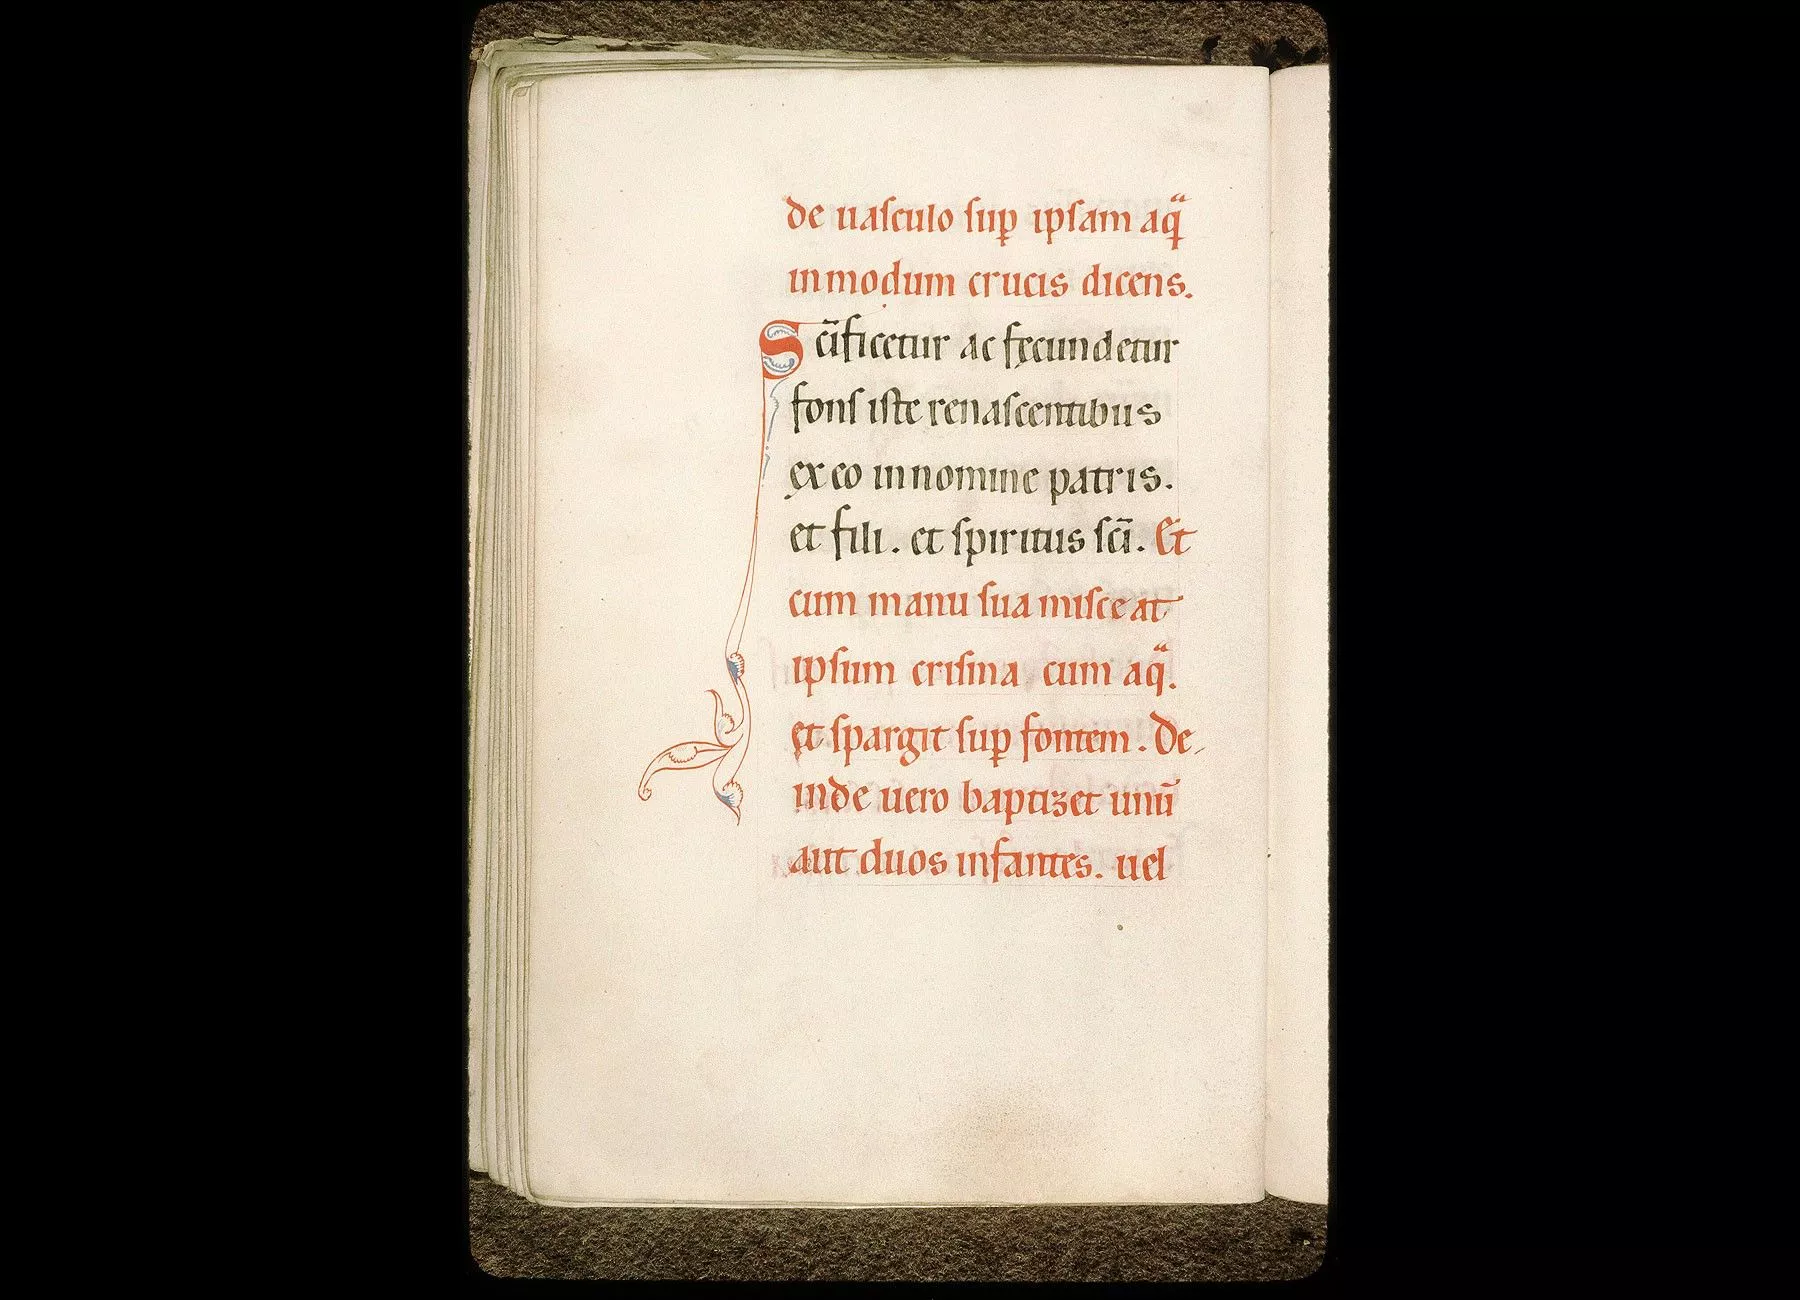 de uasculo sup̱ ipsam aqͣ
in modum crucis dicens.
Sc̄ificetur ac fęcundetur
fons iste renascentibus
ex eo in nomine patris.
et fili. et spiritus sc̄i. Et
cum manu sua misceat
ipsum crisma cum aqͣ.
et spargit sup̱ fontem. De-
inde uero baptizet unū
aut duos infantes. uel